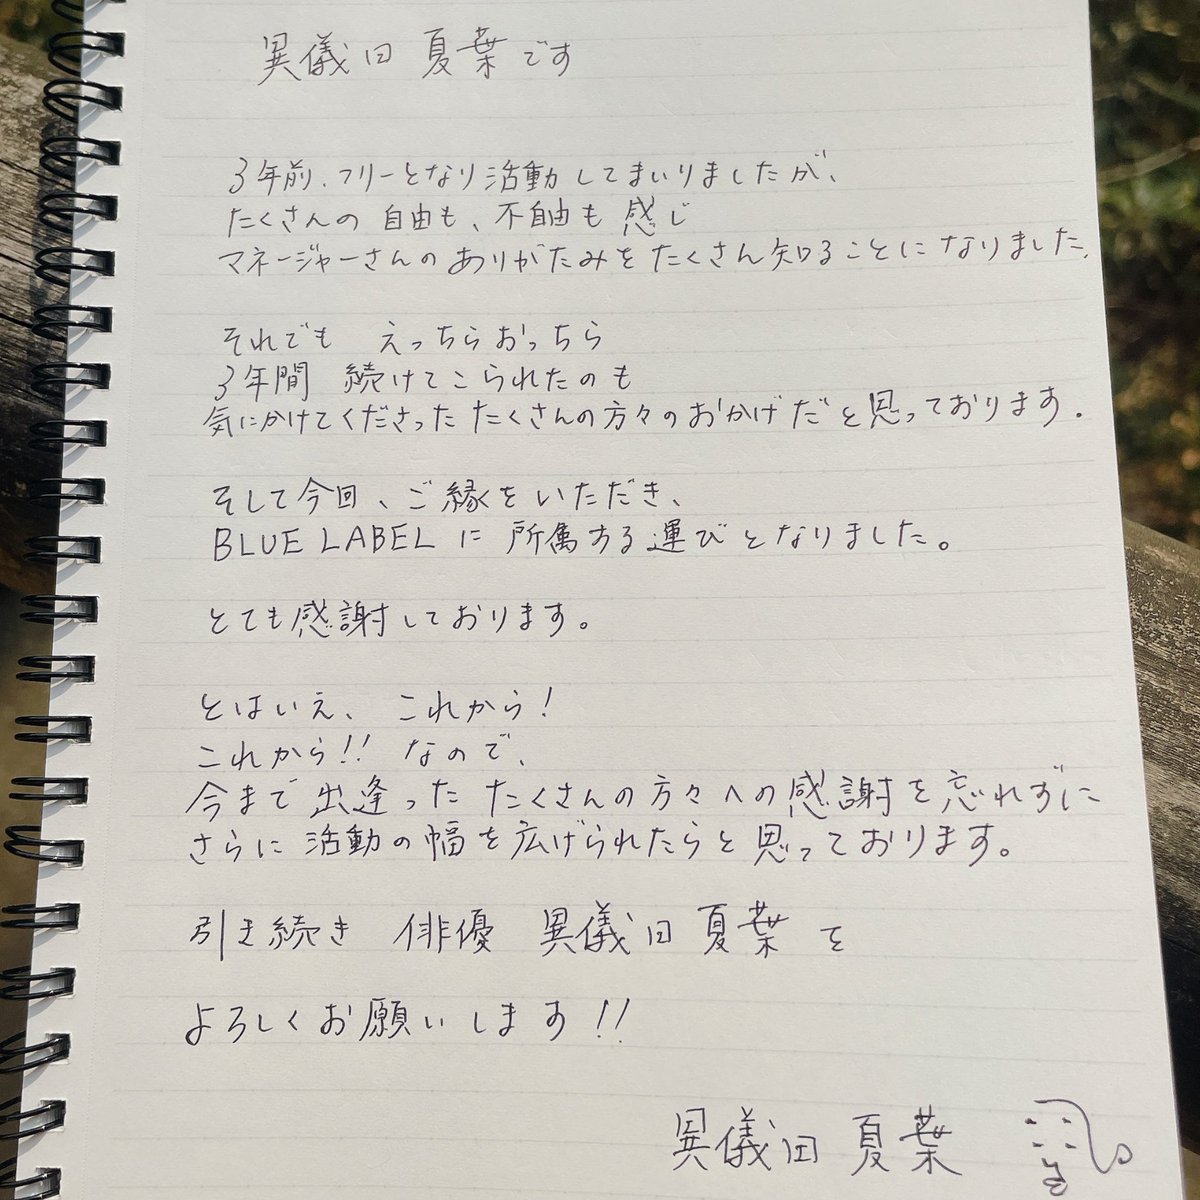 異儀田 夏葉です
3年前、フリーとなり活動してまいりましたが、
たくさんの 自由も、不自由も 感じ
マネージャーさんのありがたみをたくさん知ることになりました。
それでも えっちらおっちら
3年間 続けてこられたのも
気にかけてくださった たくさんの方々のおかげだと思っております。
そして今回、ご縁をいただき、
BLUE LABEL に 所属する運びとなりました。
とても感謝しております。
とはいえ、これから!
これから!! なので、
今まで出逢った たくさんの方々への感謝を忘れずに
さらに活動の幅を広げられたらと思っております。
引き続き 俳優 異儀田夏葉を
よろしくお願いします!!
異儀田 夏葉